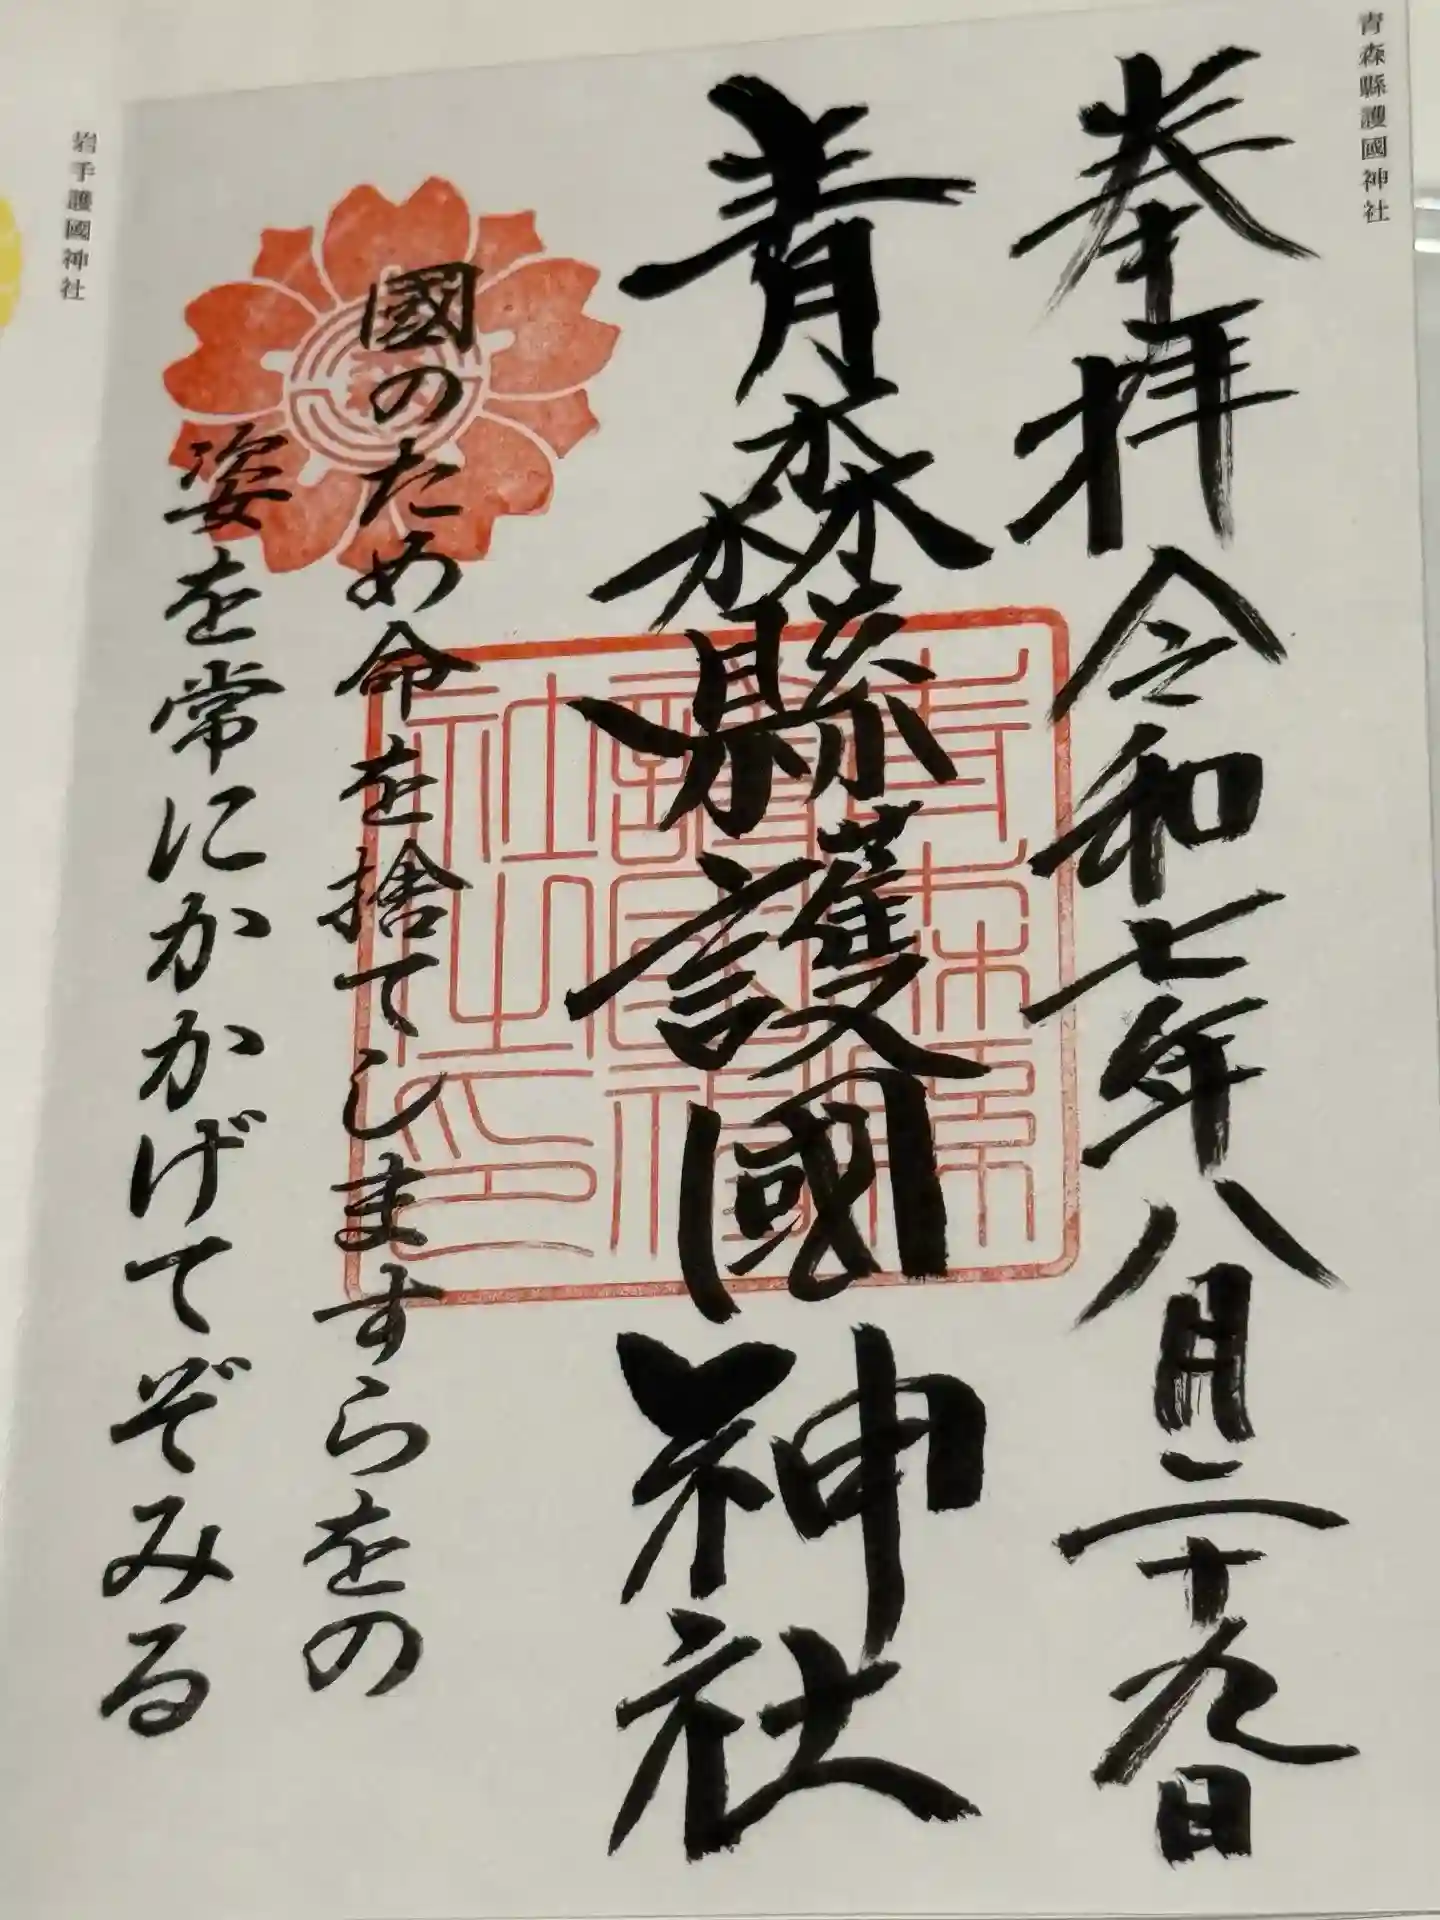 青森縣護國神社
奉拝 令和七年八月二十九日
青森縣護國神社
國のため命を捨てしますらをの
姿を常にかかげてぞみる
青森縣護國神社之印
岩手護國神社